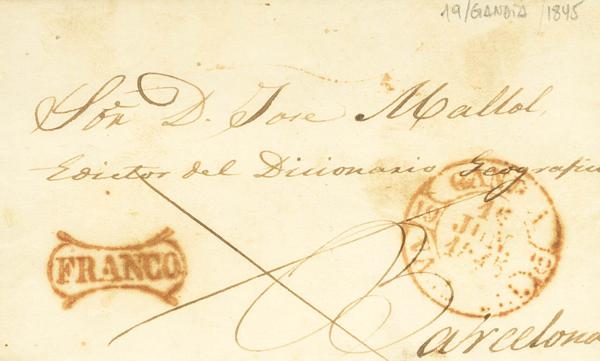 19/GANDÍA /1845
Sõr. D. Jose Mallol,
Edictor del Dicionario Geografico
GANDIA
16
JUN
1845
FRANCO
Barcelona